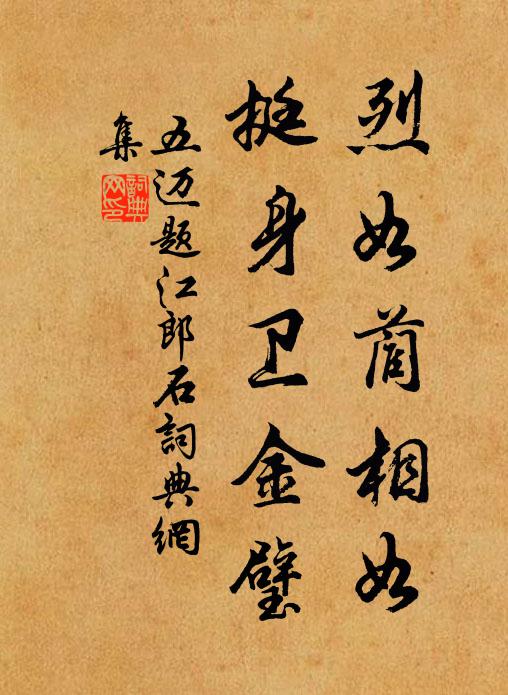 烈如蔺相如
挺身卫金璧
五迈题江郎石詞典網
集
詞典
网印